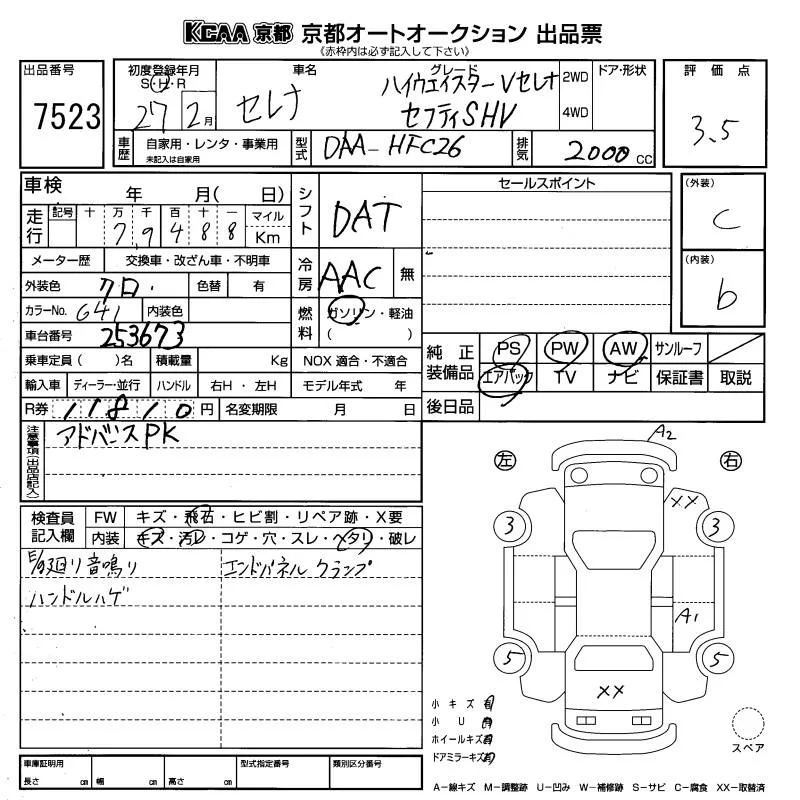 KCAA 京都 京都オートオークション 出品票
《赤枠内は必ず記入して下さい》
出品番号
7523
初度登録年月
S・H・R
27 2月
車名
セレナ
グレード
ハイウェイスターVセレナ
セフティSHV
2WD
4WD
ドア・形状
評価点
3.5
車歴
自家用・レンタ・事業用
未記入は自家用
型式
DAA-HFC26
排気
2000 CC
車検
年 月( 日)
シフト
DAT
セールスポイント
(外装)
C
走行
記号 十 万 千 百 十 一 マイル
7 9 4 8 8 Km
メーター歴 交換車・改ざん車・不明車
冷房
AAC 無
(内装)
b
外装色 クロ・ 色替 有
カラーNo. G41 内装色
燃料
ガソリン・軽油
( )
車台番号 253673
乗車定員( )名 積載量 Kg NOX 適合・不適合
輸入車 ディーラー・並行 ハンドル 右H・左H モデル年式 年
純正装備品
PS PW AW サンルーフ
エアバック TV ナビ 保証書 取説
後日品
R券 11810円 名変期限 月 日
注意事項(出品店記入)
アドバンスPK
検査員記入欄
FW キズ・飛石・ヒビ割・リペア跡・X要
内装 キズ・汚レ・コゲ・穴・スレ・ヘタリ・破レ
E/g廻り音鳴り エンドパネル クランプ
ハンドルハゲ
左 右
A2
XX
3 3
A1
5 5
XX
小キズ有
小U有
ホイールキズ有
ドアミラーキズ有
スペア
車庫証明用
長さ cm 幅 cm 高さ cm
型式指定番号
類別区分番号
A−線キズ M−調整跡 U−凹み W−補修跡 S−サビ C−腐食 XX−取替済